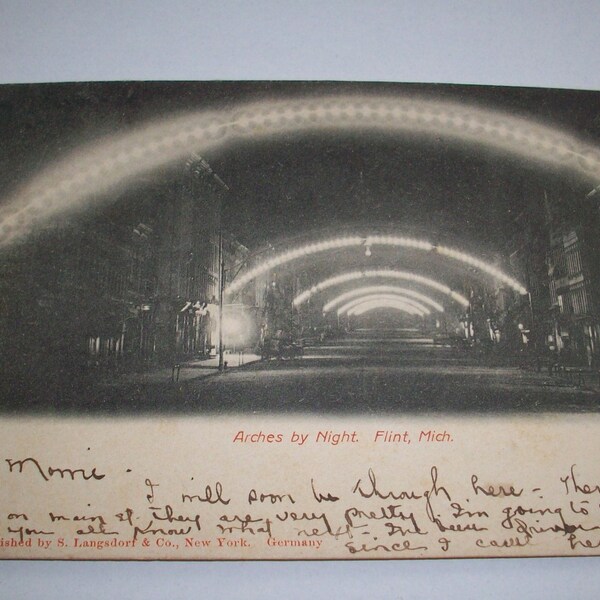 Arches by Night. Flint, Mich.
I will soon be through here - 
on main st. they are very pretty. I'm going to
you all know what next. I've been
ished by S. Langsdorf & Co., New York. Germany
since I